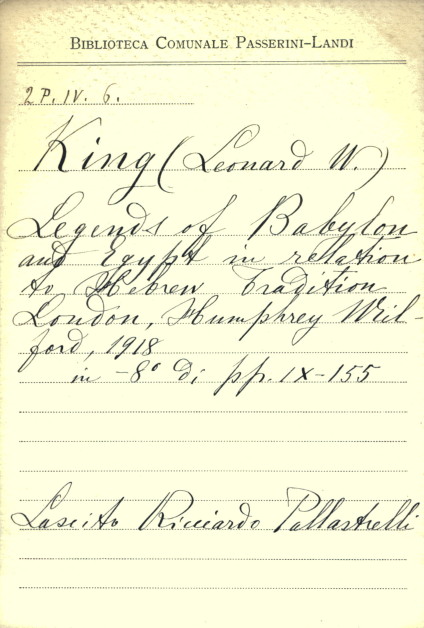 BIBLIOTECA COMUNALE PASSERINI-LANDI
2P. IV. 6.
King (Leonard W.)
Legends of Babylon
and Egypt in relation
to Hebrew Tradition
London, Humphrey Wril-
ford, 1918
in -8° di pp. IX-155
Lascito Ricciardo Pallastrelli